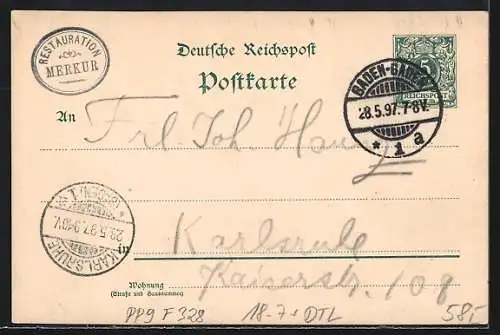 RESTAURATION
MERKUR
Deutsche Reichspost
Postkarte
5
REICHSPOST
BADEN-BADEN
28.5.97. 7-8V.
* 1 a
An
Frl. Joh.
KARLSRUHE
28.5.97. 9-10V.
in
Karlsruhe
Wohnung
(Straße und Hausnummer)
Kaiserstr. 109
PP9 F 328
18-7 + DTL
58,-